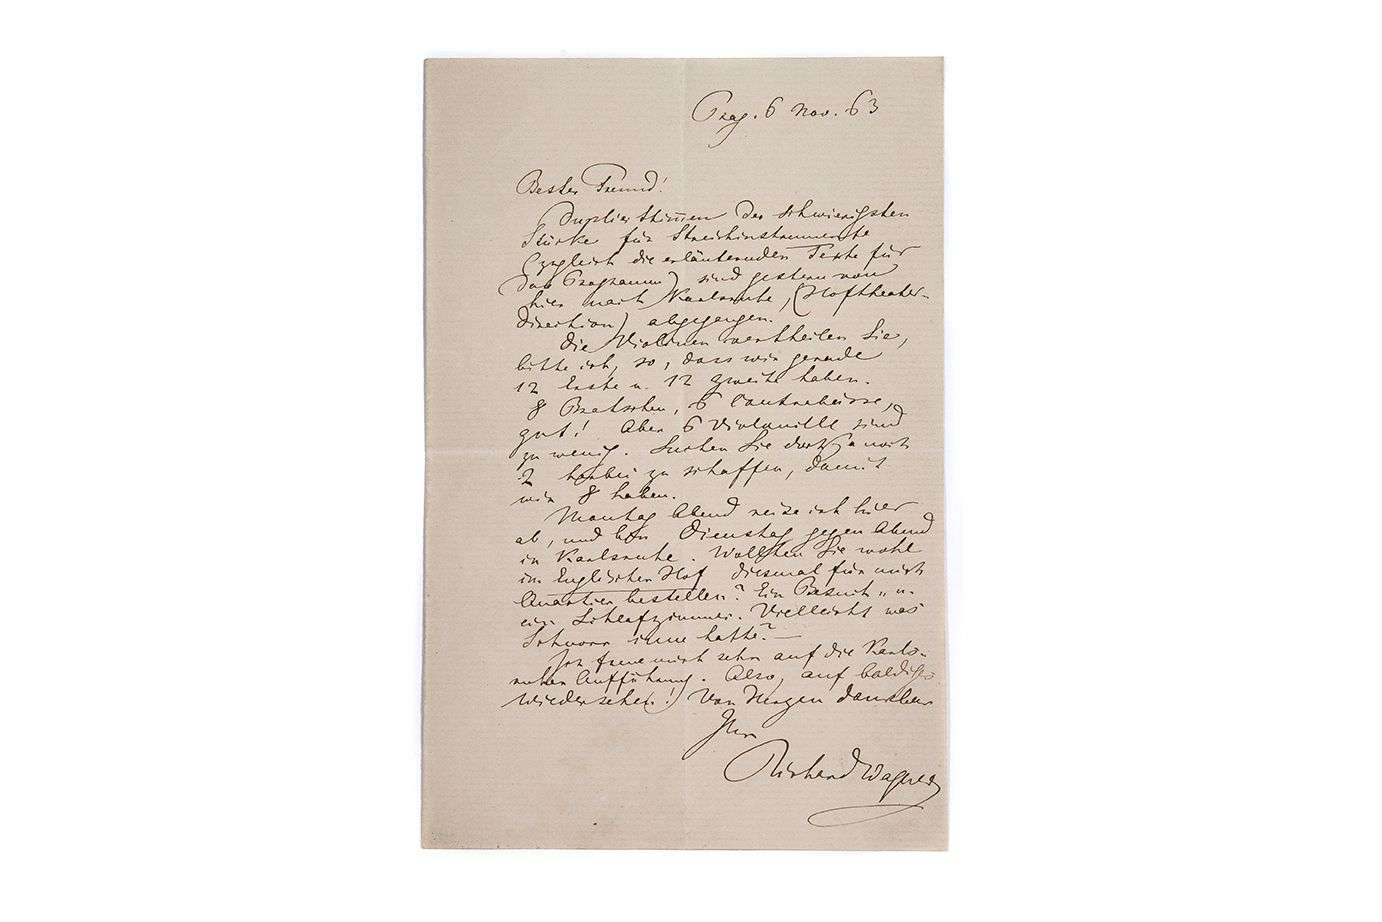 Prag. 6 Nov. 63
Bester Freund!
Duplierstimmen der schwierigsten
Stücke für Streichinstrumente
(zugleich die erläuternden Texte für
das Programm) sind gestern von
hier nach Karlsruhe, (Hoftheater-
direction) abgegangen.
Die Violinen vertheilen Sie,
bitte ich, so, dass wir gerade
12 Erste u. 12 zweite haben.
8 Bratschen, 6 Contrabässe,
gut! Aber 6 Violoncelle sind
zu wenig. Suchen Sie noch
2 herbei zu schaffen, damit
wir 8 haben.
Montag Abend reise ich hier
ab, und bin Dienstag gegen Abend
in Karlsruhe. Wollten Sie wohl
im Englischen Hof diesmal für mich
Quartier bestellen? Ein Besuch- u.
ein Schlafzimmer. Vielleicht was
Schnorr inne hatte? —
Ich freue mich sehr auf die Karls-
ruher Aufführung. Also, auf baldiges
Wiedersehen! Von Herzen dankbar
Ihr
Richard Wagner